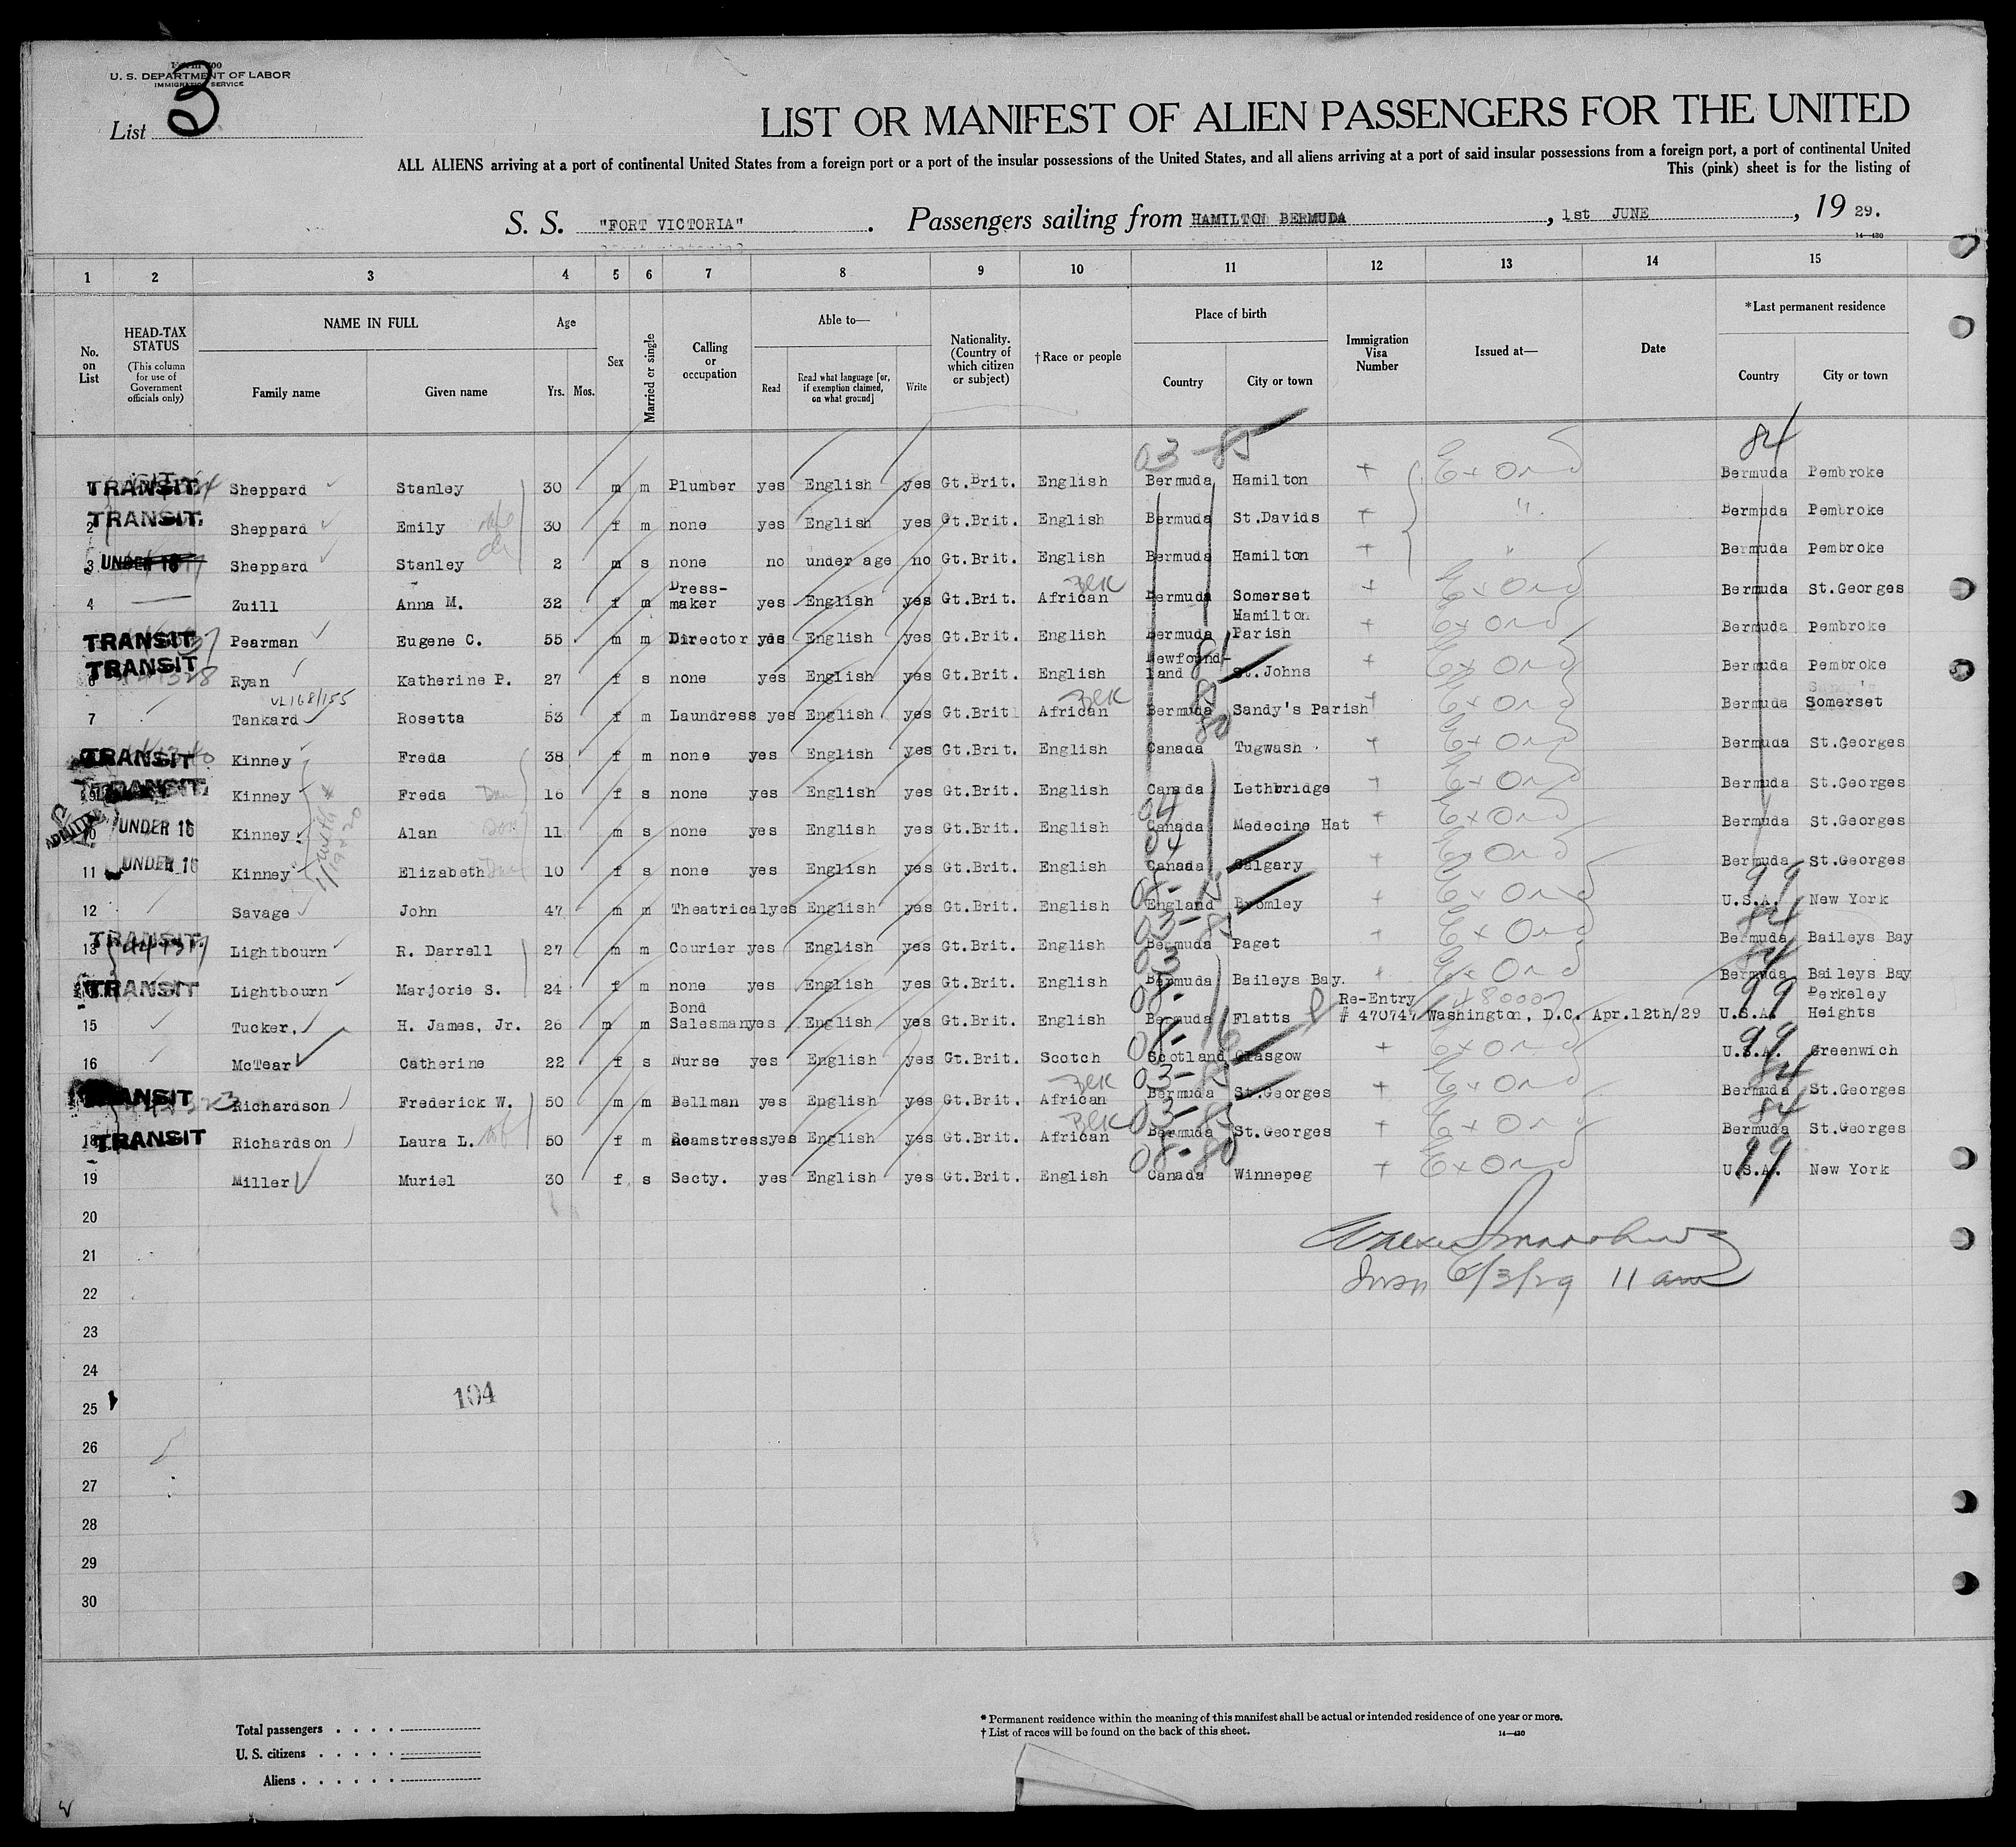 Form 500
U. S. DEPARTMENT OF LABOR
IMMIGRATION SERVICE
List 3
LIST OR MANIFEST OF ALIEN PASSENGERS FOR THE UNITED
ALL ALIENS arriving at a port of continental United States from a foreign port or a port of the insular possessions of the United States, and all aliens arriving at a port of said insular possessions from a foreign port, a port of continental United
This (pink) sheet is for the listing of
S. S. "FORT VICTORIA". Passengers sailing from HAMILTON BERMUDA, 1st JUNE, 1929.
14—430
1 2 3 4 5 6 7 8 9 10 11 12 13 14 15
No. on List
HEAD-TAX STATUS (This column for use of Government officials only)
NAME IN FULL
Family name Given name
Age
Yrs. Mos.
Sex
Married or single
Calling or occupation
Able to—
Read Read what language [or, if exemption claimed, on what ground] Write
Nationality. (Country of which citizen or subject)
†Race or people
Place of birth
Country City or town
Immigration Visa Number
Issued at—
Date
*Last permanent residence
Country City or town
03-85 84
TRANSIT Sheppard Stanley 30 m m Plumber yes English yes Gt.Brit. English Bermuda Hamilton + Ex Ond Bermuda Pembroke
2 TRANSIT Sheppard Emily wife 30 f m none yes English yes Gt.Brit. English Bermuda St.Davids + " Bermuda Pembroke
3 UNDER 16 Sheppard Stanley 2 m s none no under age no Gt.Brit. English Bermuda Hamilton + " Bermuda Pembroke
4 Zuill Anna M. 32 f m Dress-maker yes English yes Gt.Brit. African Blk Bermuda Somerset + Ex Ond Bermuda St.Georges
TRANSIT Pearman Eugene C. 55 m m Director yes English yes Gt.Brit. English Bermuda Hamilton Parish + Ex Ond Bermuda Pembroke
6 TRANSIT Ryan Katherine P. 27 f s none yes English yes Gt.Brit. English Newfound-land 81 St.Johns + Ex Ond Bermuda Pembroke
VL168/155
7 Tankard Rosetta 53 f m Laundress yes English yes Gt.Brit African Blk Bermuda 85 Sandy's Parish + Ex Ond Bermuda Somerset
TRANSIT Kinney Freda 38 f m none yes English yes Gt.Brit. English Canada 80 Tugwash + Ex Ond Bermuda St.Georges
9 TRANSIT Kinney Freda Dau 16 f s none yes English yes Gt.Brit. English Canada Lethbridge + Ex Ond Bermuda St.Georges
10 ADMITTED UNDER 16 Kinney Alan son 11 m s none yes English yes Gt.Brit. English 04 Canada Medecine Hat + Ex Ond Bermuda St.Georges
11 UNDER 16 Kinney Elizabeth Dau 10 f s none yes English yes Gt.Brit. English 04 Canada Calgary + Ex Ond Bermuda St.Georges
12 Savage John 47 m m Theatrical yes English yes Gt.Brit. English 08-15 England Bromley + Ex Ond 99 U.S.A. New York
13 TRANSIT Lightbourn R. Darrell 27 m m Courier yes English yes Gt.Brit. English 03-85 Bermuda Paget + Ex Ond 84 Bermuda Baileys Bay
TRANSIT Lightbourn Marjorie S. 24 f m none yes English yes Gt.Brit. English 03 Bermuda Baileys Bay. + Ex Ond 84 Bermuda Baileys Bay
15 Tucker, H. James, Jr. 26 m m Bond Salesman yes English yes Gt.Brit. English 08- Bermuda Flatts Re-Entry # 470747 Washington, D.C. Apr.12th/29 99 U.S.A. Berkeley Heights
16 McTear Catherine 22 f s Nurse yes English yes Gt.Brit. Scotch 08-16 Scotland Glasgow + Ex Ond 99 U.S.A. Greenwich
TRANSIT Richardson Frederick W. 50 m m Bellman yes English yes Gt.Brit. African Blk 03-85 Bermuda St.Georges + Ex Ond 84 Bermuda St.Georges
18 TRANSIT Richardson Laura L. wf 50 f m Seamstress yes English yes Gt.Brit. African Blk 03-85 Bermuda St.Georges + Ex Ond 84 Bermuda St.Georges
19 Miller Muriel 30 f s Secty. yes English yes Gt.Brit. English 08-80 Canada Winnepeg + Ex Ond 99 U.S.A. New York
20
21
22
6/3/29 11 am
23
24
25
104
26
27
28
29
30
Total passengers
U. S. citizens
Aliens
* Permanent residence within the meaning of this manifest shall be actual or intended residence of one year or more.
† List of races will be found on the back of this sheet. 14—430